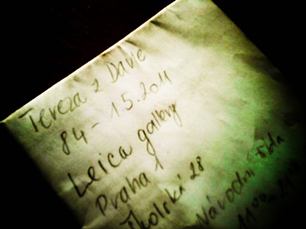 Tereza z Davle
84 - 15.2011
Leica gallery
Praha 1
Školská 28
Národní třída